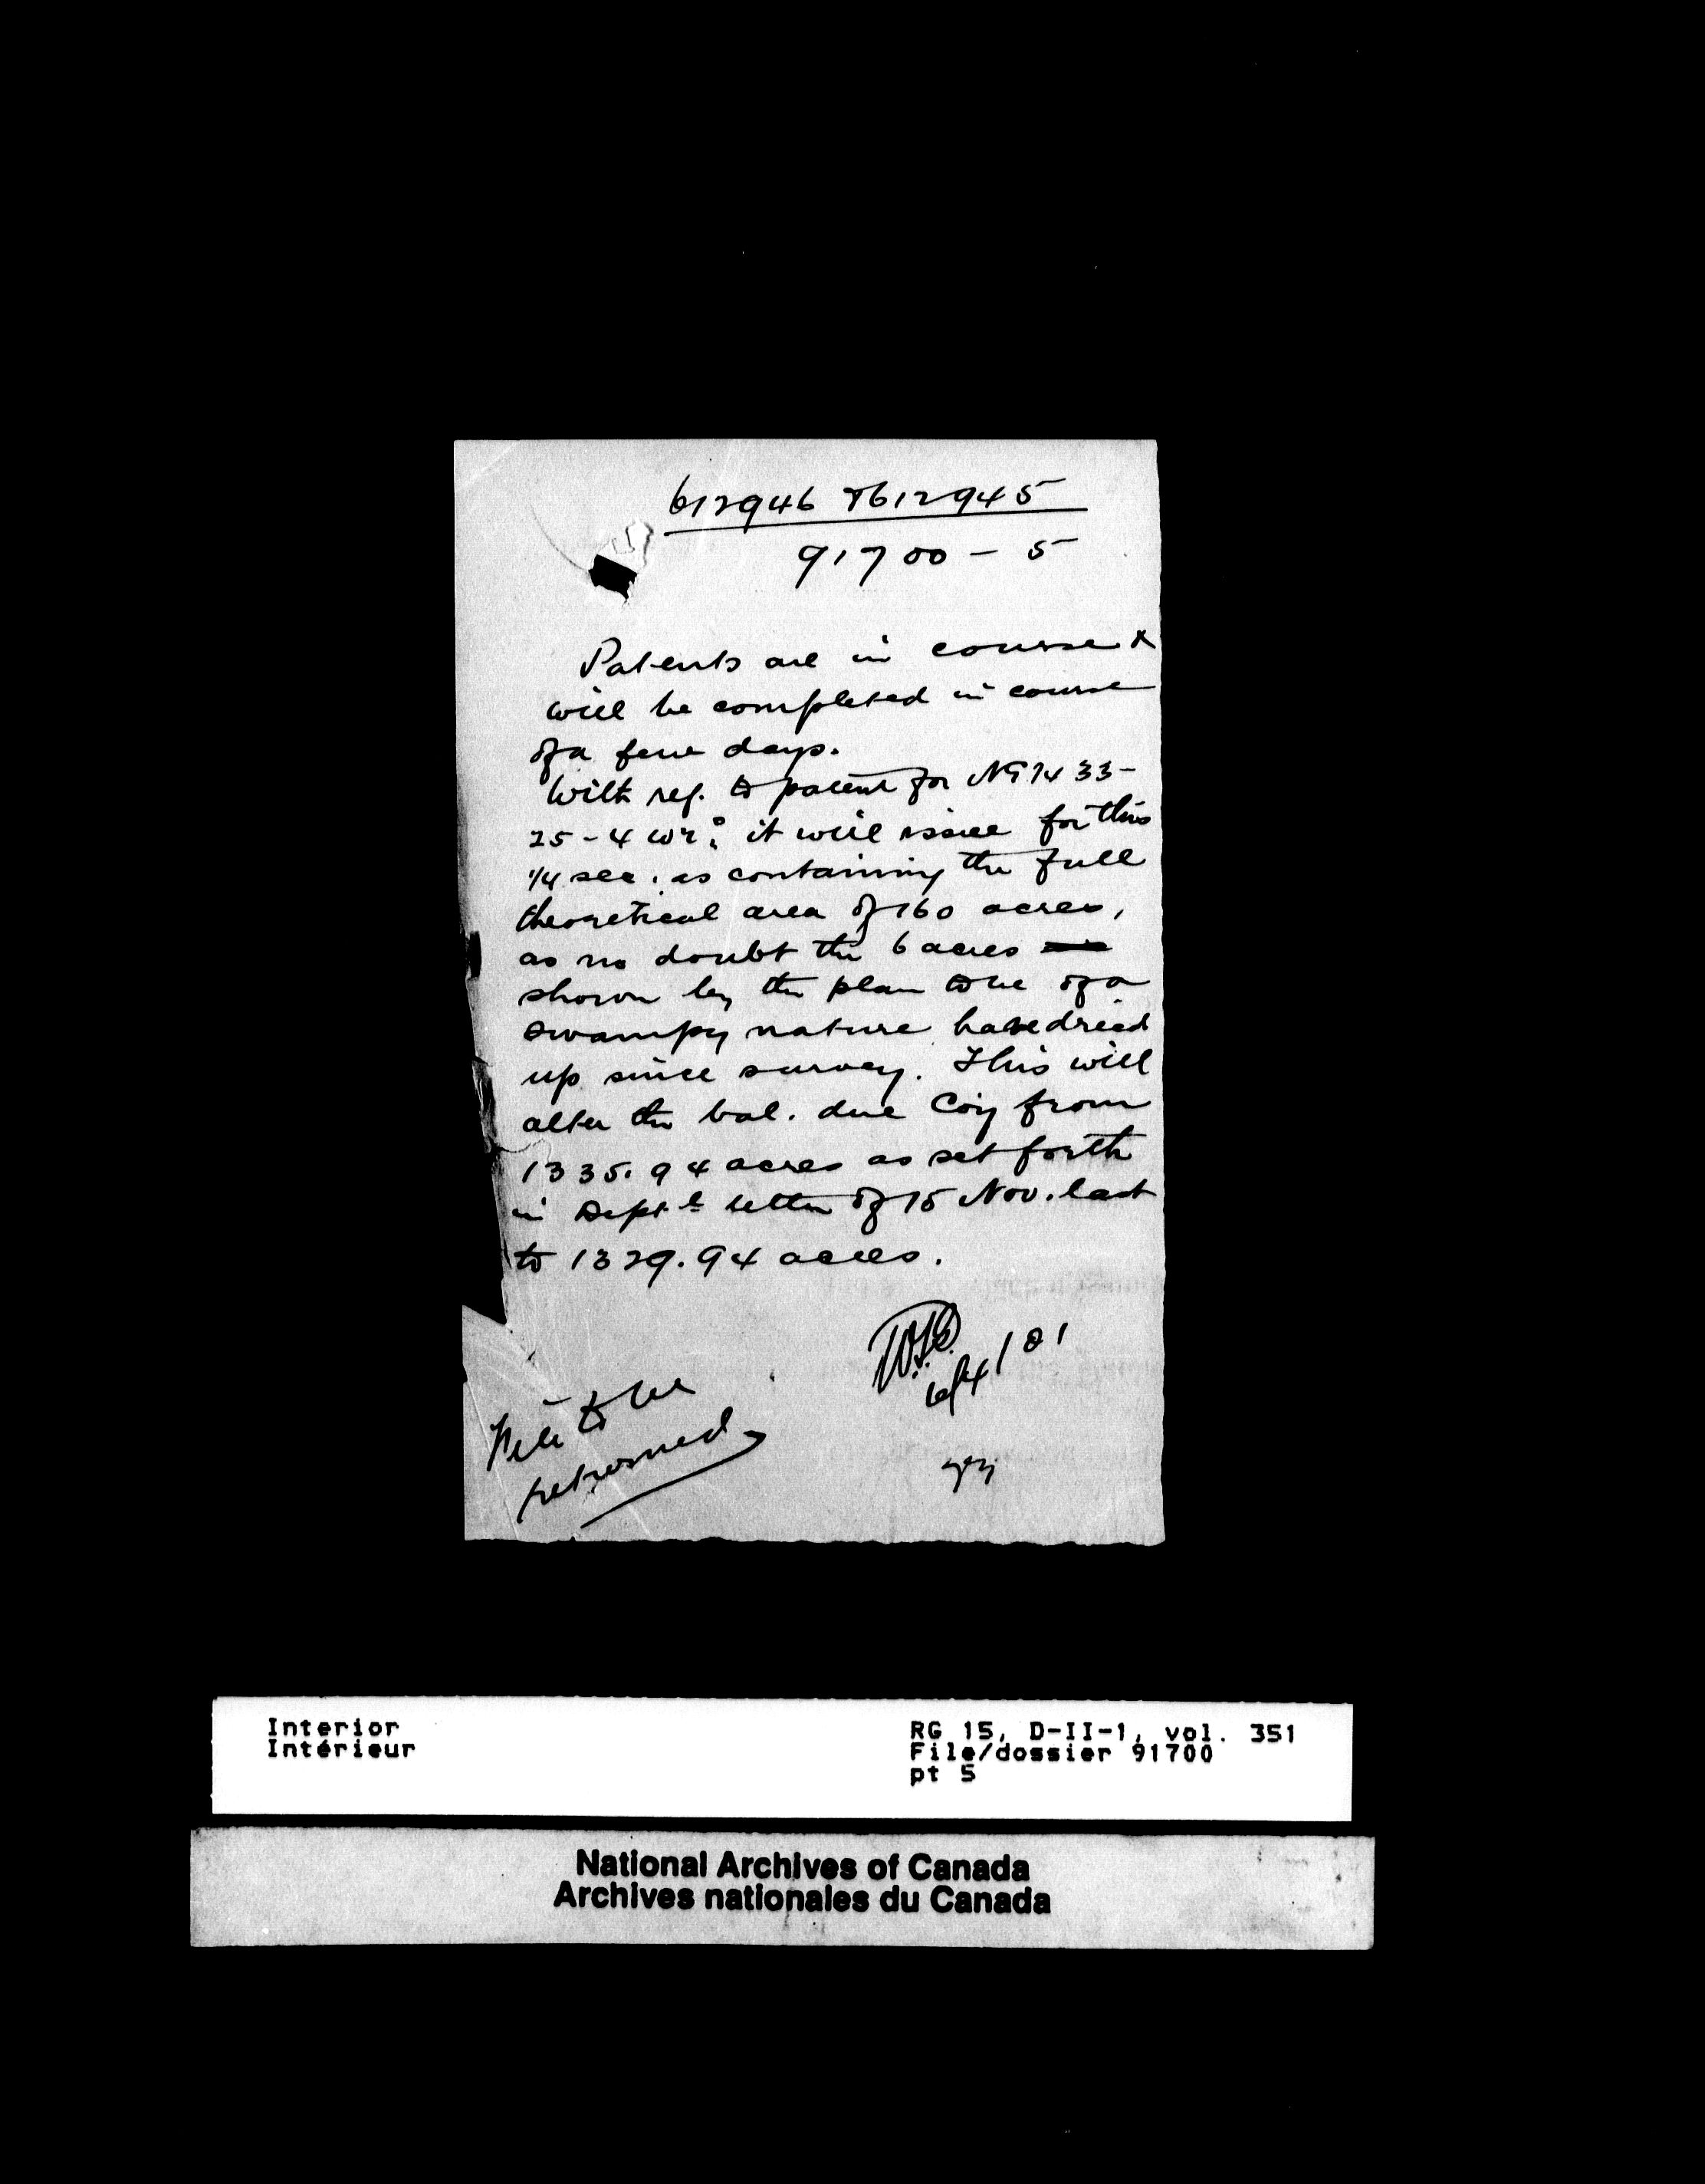 612946 & 612945
91700 - 5
Patents are in course &
will be completed in course
of a few days.
With ref. to patent for NE 1/4 33-
25-4 W 2; it will issue for this
1/4 sec. as containing the full
theoretical area of 160 acres,
as no doubt the 6 acres
shown by the plan to be of a
swampy nature have dried
up since survey. This will
alter the bal. due Coy from
1335.94 acres as set forth
in Dept'l letter of 15 Nov. last
to 1329.94 acres.
File to be
returned
Interior
Intérieur
RG 15, D-II-1, vol. 351
File/dossier 91700
pt 5
National Archives of Canada
Archives nationales du Canada